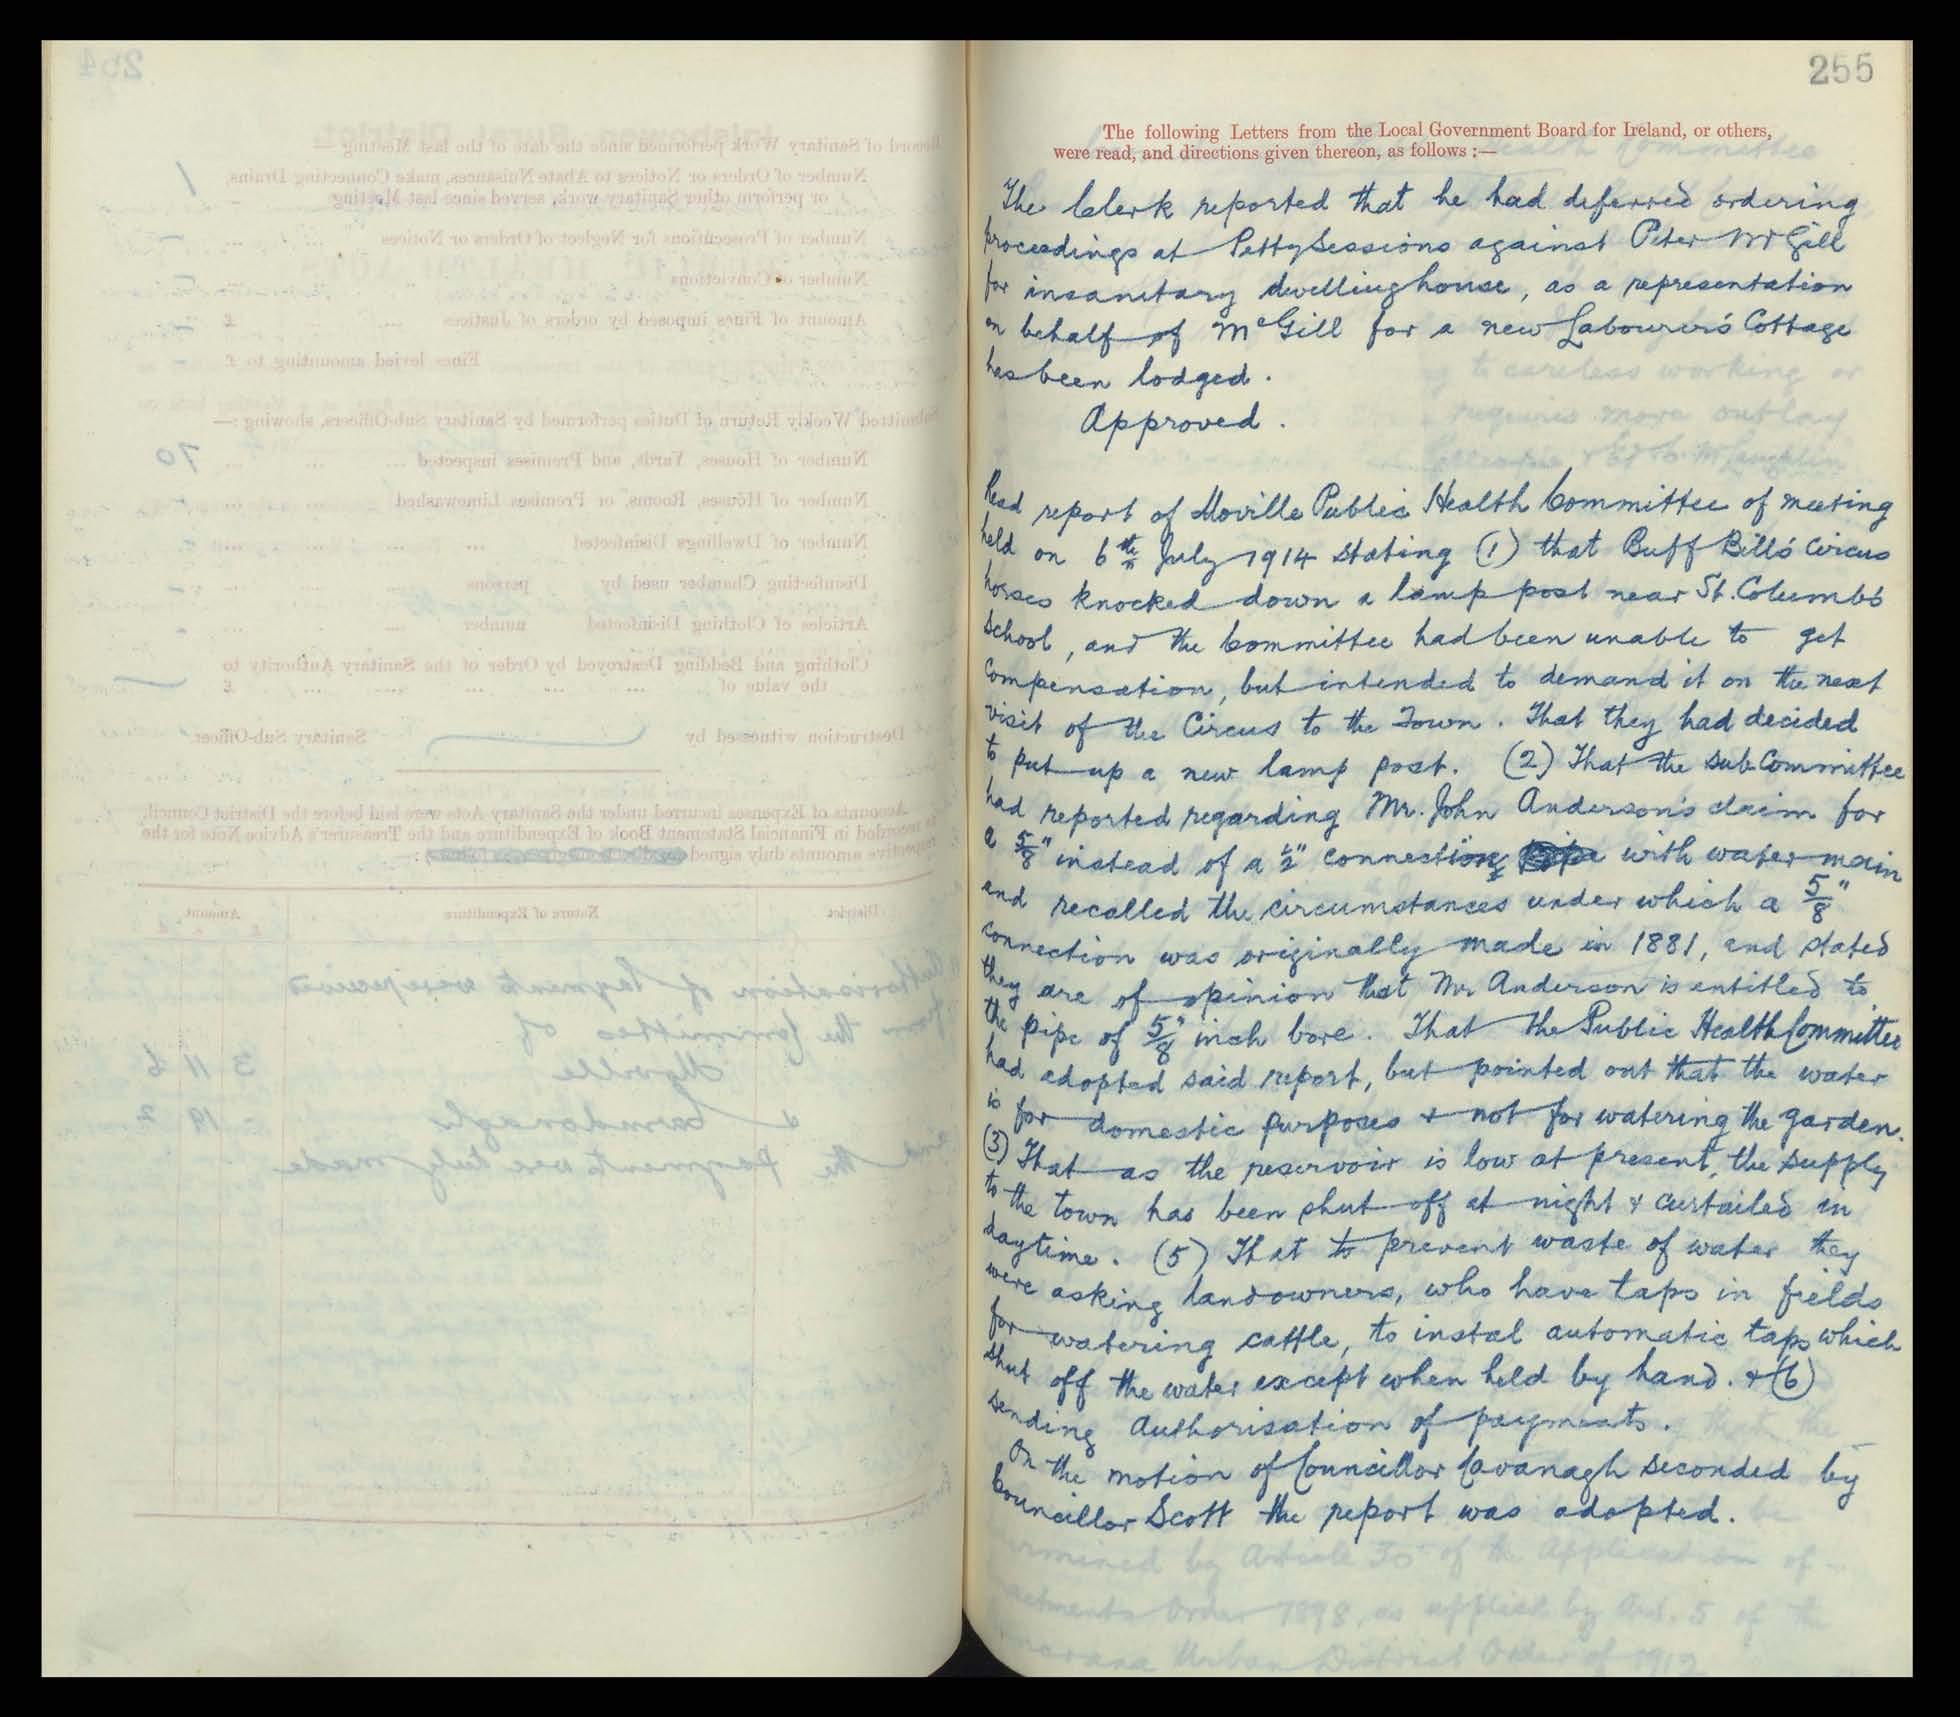 255
The following Letters from the Local Government Board for Ireland, or others,
were read, and directions given thereon, as follows :—
The Clerk reported that he had deferred ordering
proceedings at Petty Sessions against Peter McGill
for insanitary dwellinghouse, as a representation
on behalf of McGill for a new Labourer's Cottage
has been lodged.
Approved.
Read report of Moville Public Health Committee of meeting
held on 6th July 1914 stating (1) that Buff Bill's Circus
horses knocked down a lamp post near St. Columb's
School, and the Committee had been unable to get
compensation, but intended to demand it on the next
visit of the Circus to the Town. That they had decided
to put up a new lamp post. (2) That the sub-Committee
had reported regarding Mr. John Anderson's claim for
a 5/8" instead of a 1/2" connection with water main
and recalled the circumstances under which a 5/8"
connection was originally made in 1881, and stated
they are of opinion that Mr Anderson is entitled to
the pipe of 5/8" inch bore. That the Public Health Committee
had adopted said report, but pointed out that the water
is for domestic purposes & not for watering the garden.
(3) That as the reservoir is low at present, the supply
to the town has been shut off at night & curtailed in
daytime. (5) That to prevent waste of water they
were asking landowners, who have taps in fields
for watering cattle, to instal automatic taps which
shut off the water except when held by hand. & (6)
sending Authorisation of payments.
On the motion of Councillor Cavanagh seconded by
Councillor Scott the report was adopted.